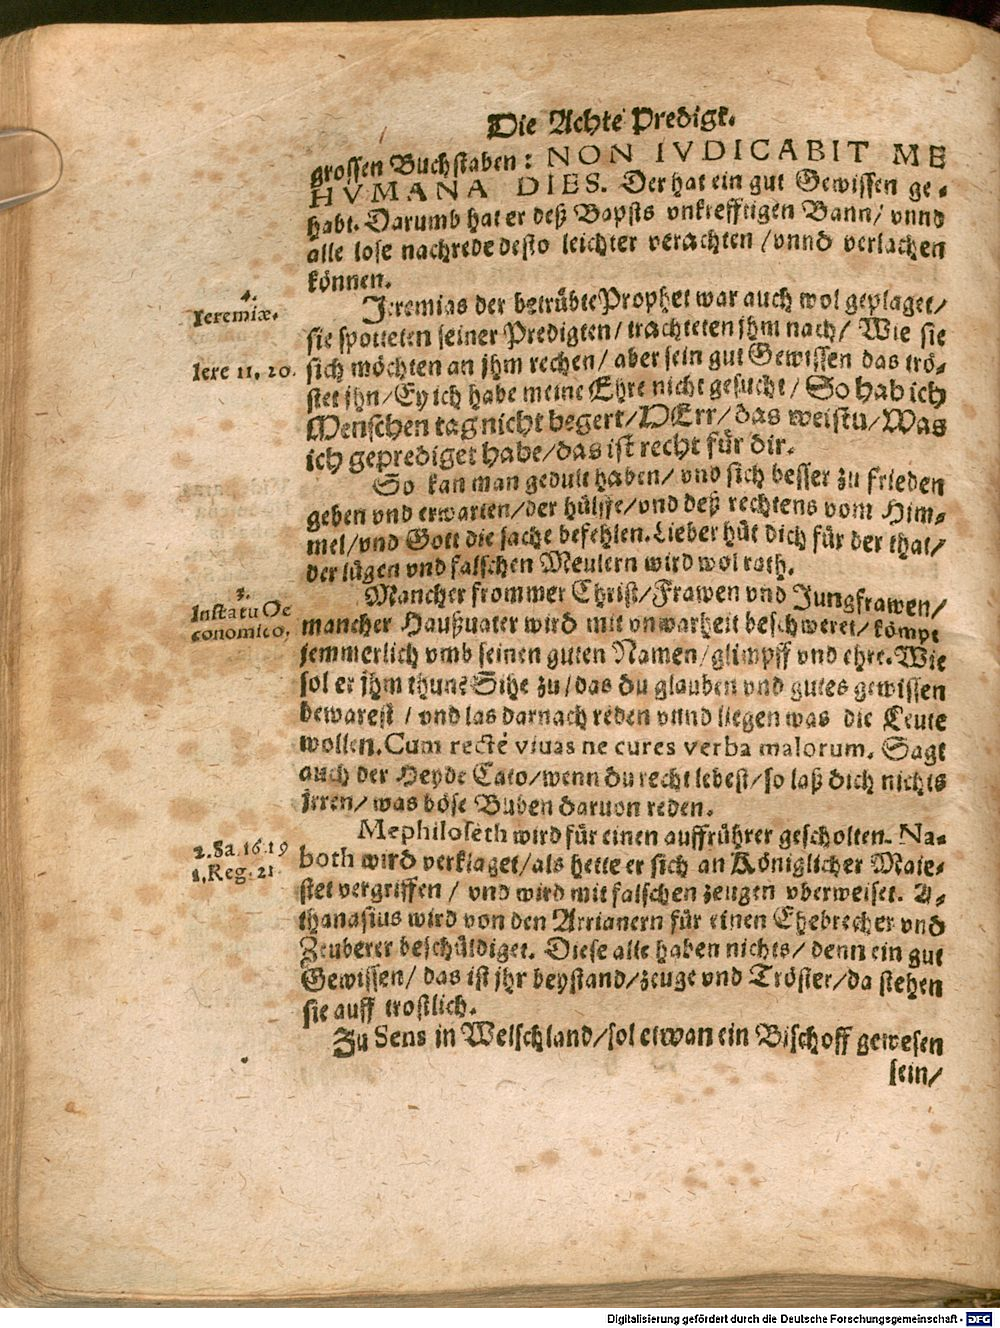 Die Achte Predigt.
grossen Buchstaben: NON IVDICABIT ME
HVMANA DIES. Der hat ein gut Gewissen ge-
habt. Darumb hat er deß Bapsts vnkrefftigen Bann/ vnnd
alle lose nachrede desto leichter verachten/ vnnd verlachen
können.
4.
Ieremiæ.
Jeremias der betrübte Prophet war auch wol geplaget/
sie spotteten seiner Predigten/ trachteten jhm nach/ Wie sie
Iere 11. 20.
sich möchten an jhm rechen/ aber sein gut Gewissen das trö-
stet jhn/ Ey ich habe meine Ehre nicht gesucht/ So hab ich
Menschen tag nicht begert/ HErr/ das weistu/ Was
ich geprediget habe/ das ist recht für dir.
So kan man gedult haben/ vnd sich besser zu frieden
geben vnd erwarten/ der hülffe/ vnd deß rechtens vom Him-
mel/ vnd Gott die sache befehlen. Lieber hüt dich für der that/
der lügen vnd falschen Meulern wird wol rath.
3.
In statu Oe
conomico.
Mancher frommer Christ/ Frawen vnd Jungfrawen/
mancher Haußuater wird mit vnwarheit beschweret/ kömpt
jemmerlich vmb seinen guten Namen/ glimpff vnd ehre. Wie
sol er jhm thun? Sihe zu/ das du glauben vnd gutes gewissen
bewarest/ vnd las darnach reden vnnd liegen was die Leute
wollen. Cum recté viuas ne cures verba malorum. Sagt
auch der Heyde Cato/ wenn du recht lebest/ so laß dich nichts
jrren/ was böse Buben daruon reden.
2. Sa. 16. 19
1. Reg. 21
Mephiloseth wird für einen auffrührer gescholten. Na-
both wird verklaget/ als hette er sich an Königlicher Maie-
stet vergriffen/ vnd wird mit falschen zeugen vberweiset. A-
thanasius wird von den Arrianern für einen Ehebrecher vnd
Zeuberer beschüldiget. Diese alle haben nichts/ denn ein gut
Gewissen/ das ist jhr beystand/ zeuge vnd Tröster/ da stehen
sie auff trostlich.
Zu Sens in Welschland/ sol etwan ein Bischoff gewesen
sein/
Digitalisierung gefördert durch die Deutsche Forschungsgemeinschaft - DFG